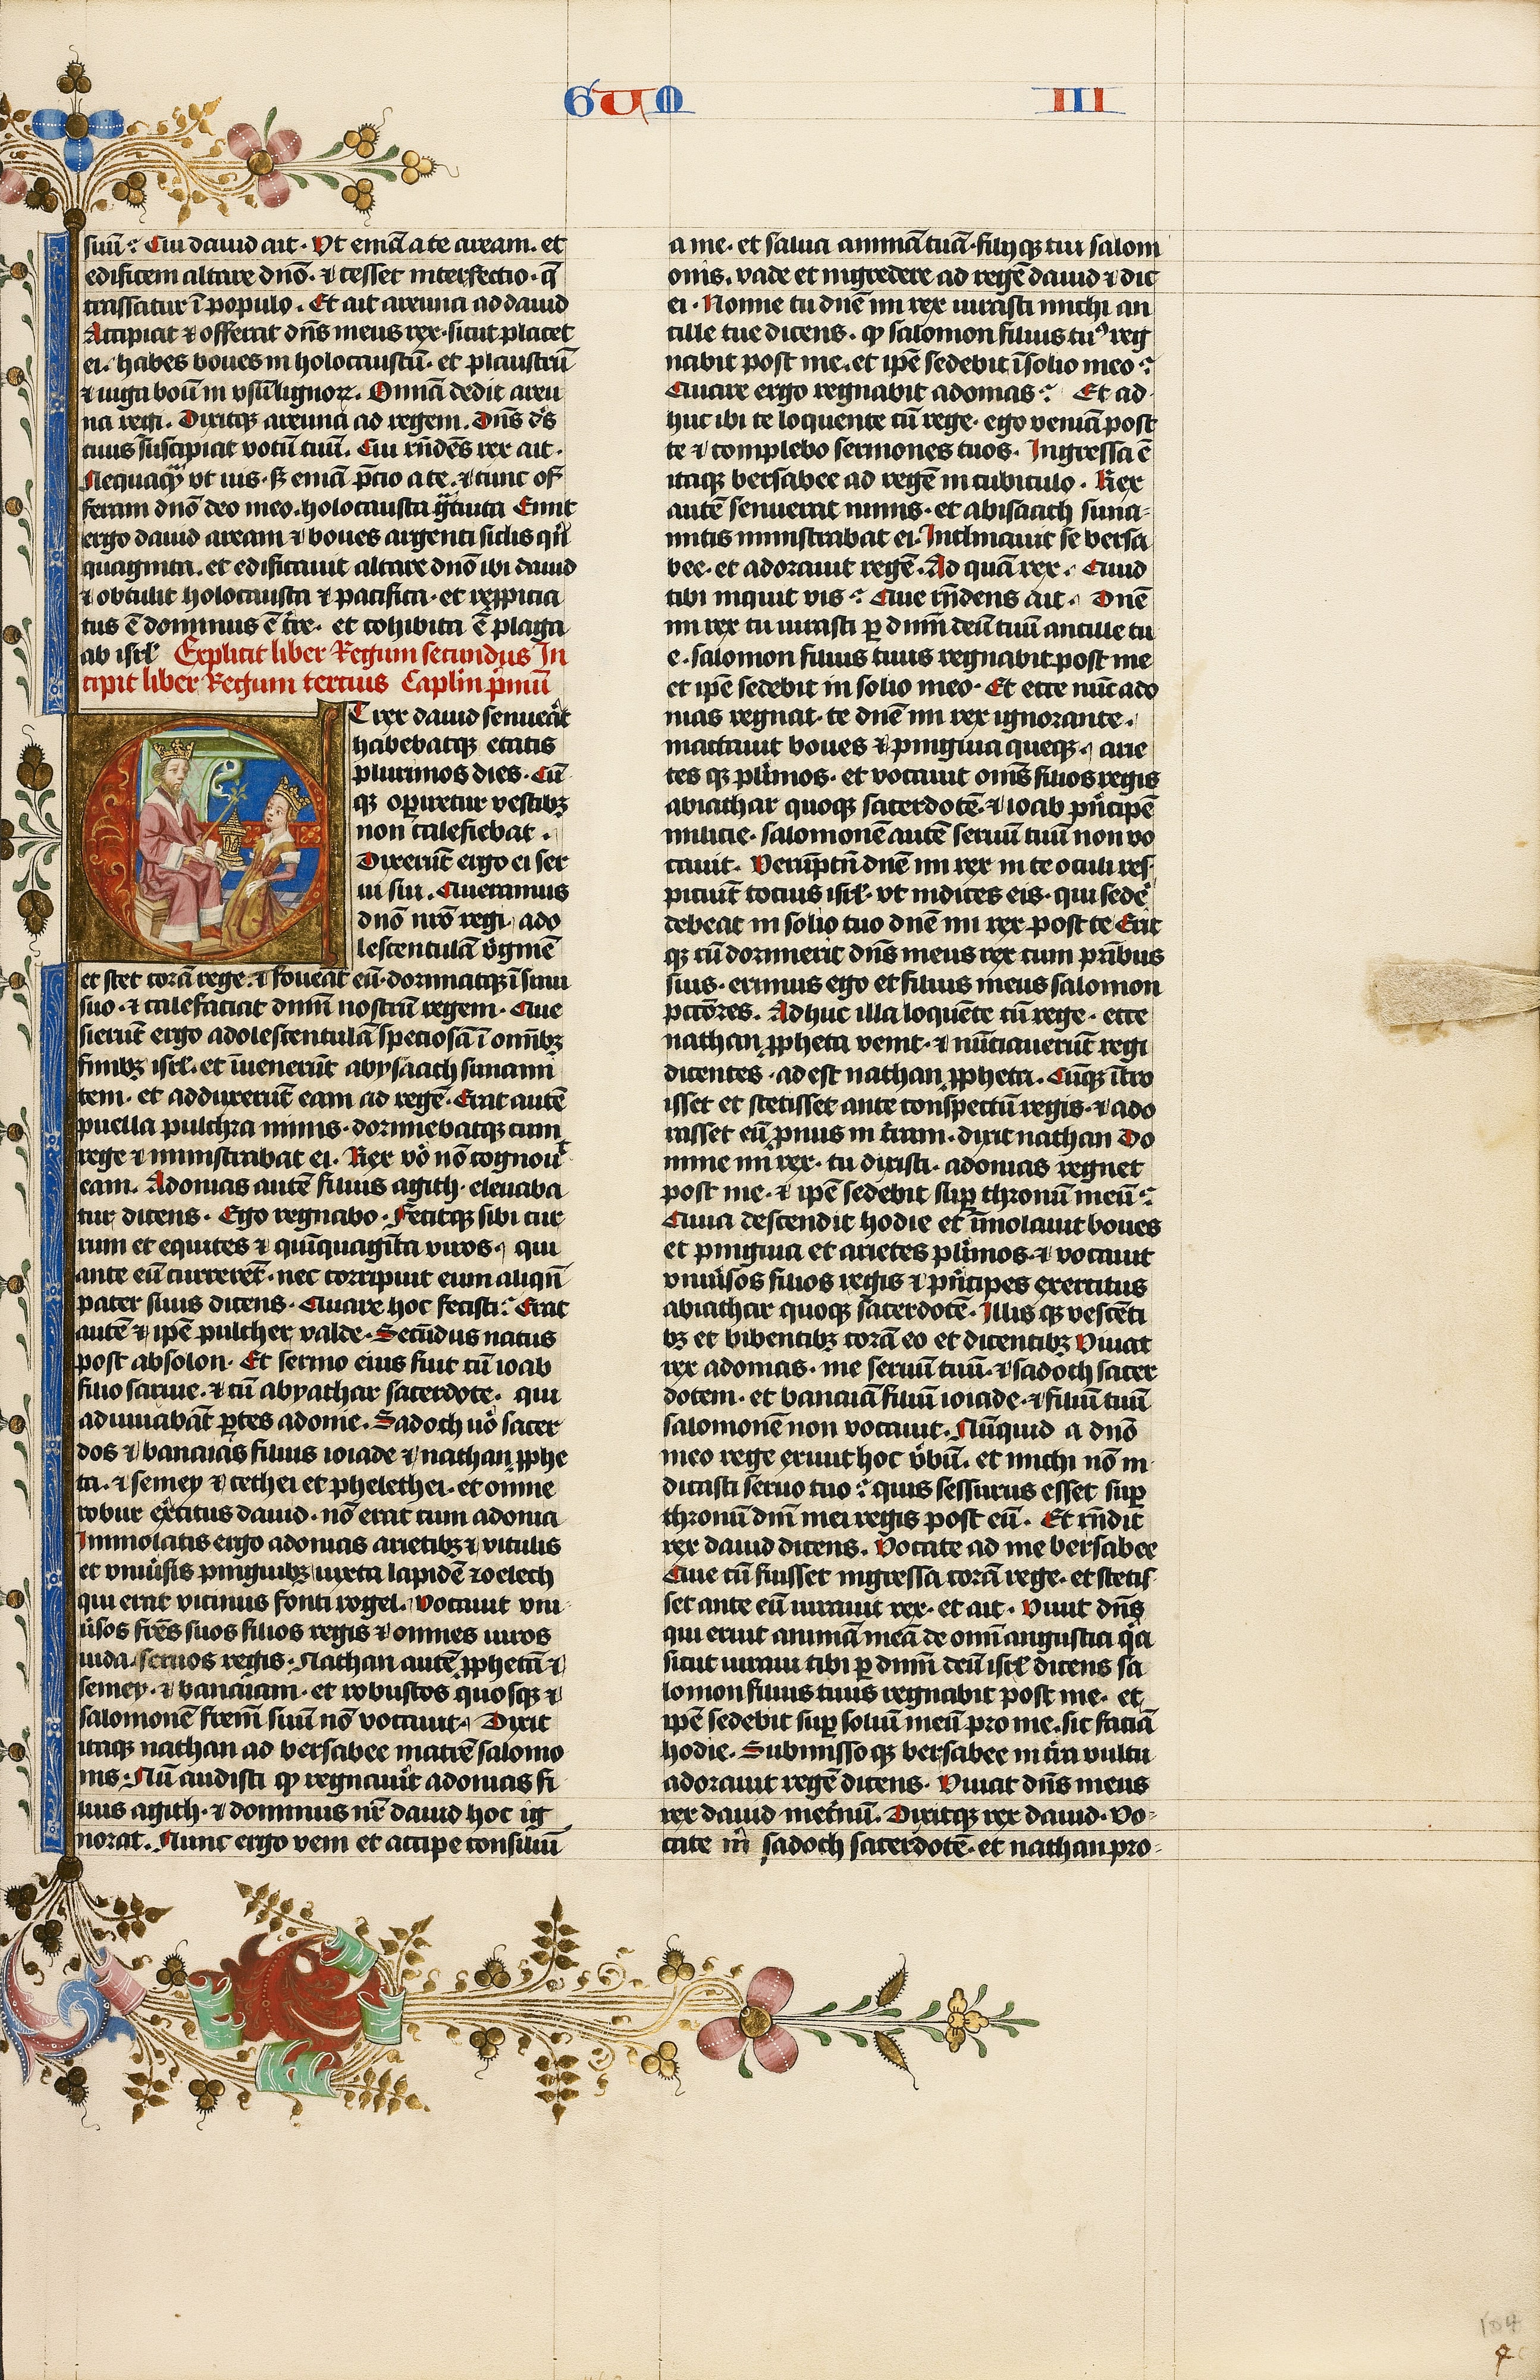 GUM III
suū? Cui dauid ait. Vt emā a te aream. et
edificem altare dnō. ⁊ cesset interfectio. q̄
crassatur ī populo. Et ait areuna ad dauid
Accipiat ⁊ offerat dn̄s meus rex. sicut placet
ei. habes boues in holocaustū. et plaustrū
⁊ iuga boū in vsū lignoꝝ. Omnia dedit areu
na regi. Dixitqꝫ areuna ad regem. Dn̄s ds̄
tuus suscipiat votū tuū. Cui rn̄dēs rex ait.
Nequaqᷓ vt uis. sꝫ emā p̄cio a te. ⁊ nunc of
feram dnō deo meo. holocausta gᷓtuita Emit
ergo dauid aream ⁊ boues argenti siclis qn̄
quaginta. et edificauit altare dnō ibi dauid
⁊ obtulit holocausta ⁊ pacifica. et repicia
tus ē dominus ē tr̄e. et cohibita ē plaga
ab isrl̄ Explicit liber Regum secundus In
cipit liber Regum tercius Caplm̄ pͥmū
Et rex dauid senueāt
habebatqꝫ etatis
plurimos dies. Cū
qꝫ oꝑiretur vestibꝫ
non calefiebat.
Dixerūt ergo ei ser
ui sui. Queramus
dnō nrō regi ado
lescentulā v̓ginē
et stet corā rege. ⁊ foueat eū. dormiatqꝫ ī sinu
suo. ⁊ calefaciat dnm̄ nostrū regem. Que
sierūt ergo adolescentulā speciosā ī om̄ibꝫ
finibꝫ isrl̄. et īuenerūt abysaach sunami
tem. et adduxerūt eam ad regē. Erat autē
puella pulchra nimis. dormiebatqꝫ cum
rege ⁊ ministrabat ei. Rex vō nō cognouᷓ
eam. Adonias autē filius agith. eleuaba
tur dicens. Ego regnabo. Fecitqꝫ sibi cur
rum et equites ⁊ quīquagīta viros. qui
ante eū currerēt. nec corripuit eum aliqn̄
pater suus dicens. Quare hoc fecisti? Erat
autē ⁊ ipē pulcher valde. Secūdus natus
post absolon. Et sermo eius fuit cū ioab
filio saruie. ⁊ cū abyathar sacerdote. qui
adiuuabāt ꝑtes adonie. Sadoch uō sacer
dos ⁊ banaias filius ioiade ⁊ nathan ꝓphe
ta. ⁊ semey ⁊ cethei et phelethei. et omne
robur ex̄citus dauid. nō erat cum adonia
Immolatis ergo adonias arietibꝫ ⁊ vitulis
et vniūsis pinguibꝫ iuxta lapidē zoelech
qui erat vicinus fonti rogel. vocauit vni
ūsos frēs suos filios regis ⁊ omnes uiros
iuda seruos regis. Nathan autē ꝓphetā ⁊
semey. ⁊ banaiam. et robustos quosqꝫ ⁊
salomonē frem̄ suū nō vocauit. Dixit
itaqꝫ nathan ad bersabee matrē salomo
nis. Nū audisti ꝙ regnauīt adonias fi
lius agith. ⁊ dominus nr̄ dauid hoc ig
norat. Nunc ergo veni et accipe consiliū
a me. et salua animā tuā. filijqꝫ tui salom
onis. vade et ingredere ad regē dauid ⁊ dic
ei. Nonne tu dnē mi rex iurasti michi an
cille tue dicens. ꝙ salomon filius tuꝰ reg
nabit post me. et ipē sedebit ī solio meo?
Quare ergo regnabit adonias? Et ad
huc ibi te loquente cū rege. ego veniā post
te ⁊ complebo sermones tuos. Ingressa ē
itaqꝫ bersabee ad regē in cubiculo. Rex
autē senuerat nimis. et abisaach suna-
mitis ministrabat ei. Inclinauit se bersa
bee. et adorauit regē. Ad quā rex. Quid
tibi inquit vis? Que rn̄dens ait. Dnē
mi rex tu iurasti ꝑ dnm̄ deū tuū ancille tu
e. salomon filius tuus regnabit post me
et ipē sedebit in solio meo. Et ecce nūc ado
nias regnat. te dnē mi rex ignorante.
mactauit boues ⁊ pinguia queqꝫ. arie
tes qꝫ plīmos. et vocauit om̄s filios regis
abiathar quoqꝫ sacerdotē. ⁊ ioab pn̄cipē
milicie. salomonē autē seruū tuū non vo
cauit. Verūptn̄ dnē mi rex in te oculi res-
piciūt tocius isrl̄. vt indices eis. qui sedē
debeat in solio tuo dnē mi rex post te Erit
qꝫ cū dormierit dn̄s meus rex cum prībus
suis. erimus ego et filius meus salomon
pctōres. Adhuc illa loquēte cū rege. ecce
nathan ꝓpheta venit. ⁊ nūtiauerūt regi
dicentes. adest nathan ꝓpheta. Cūqꝫ ītro
isset et stetisset ante conspectū regis. ⁊ ado
rasset eū pnus in tr̄am. dixit nathan Do
mine mi rex. tu dixisti. adonias regnet
post me. ⁊ ipē sedebit suꝑ thronū meū?
Quia descendit hodie et īmolauit boues
et pinguia et arietes plīmos. ⁊ vocauit
vniūsos filios regis ⁊ pn̄cipes exercitus
abiathar quoqꝫ sacerdotē. Illis qꝫ vescēti
bꝫ et bibentibꝫ corā eo et dicentibꝫ Viuat
rex adonias. me seruū tuū. ⁊ sadoch sacer
dotem. et banaiā filiū ioiade. ⁊ filiū tuū
salomonē non vocauit. Nūquid a dnō
meo rege exiuit hoc v̓bū. et michi nō in
dicasti seruo tuo? quis sessurus esset suꝑ
thronū dnī mei regis post eū. Et rn̄dit
rex dauid dicens. Vocate ad me bersabee
Que cū fuisset ingressa corā rege. et stetis-
set ante eū iurauit rex. et ait. Viuit dn̄s
qui eruit animā meā de omī angustia qͥa
sicut iuraui tibi ꝑ dnm̄ deū isrl̄ dicens sa
lomon filius tuus regnabit post me. et
ipē sedebit suꝑ soliū meū pro me. sic faciā
hodie. Submisso qꝫ bersabee in tr̄a vultu
adorauit regē dicens. Viuat dn̄s meus
rex dauid inet̄nū. Dixitqꝫ rex dauid. Vo-
cate m̄ sadoch sacerdotē. et nathan pro-
104